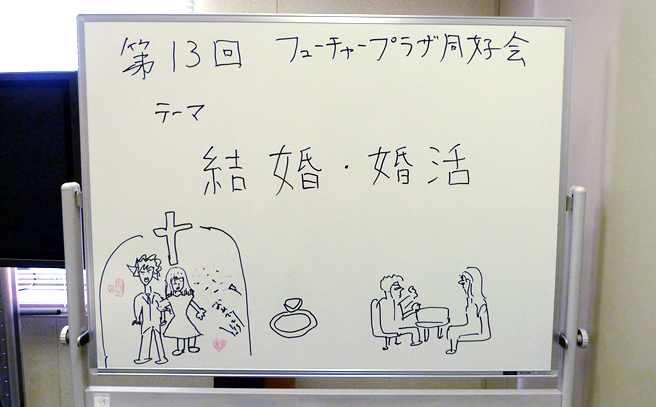 第13回 フューチャープラザ同好会
テーマ
結婚・婚活